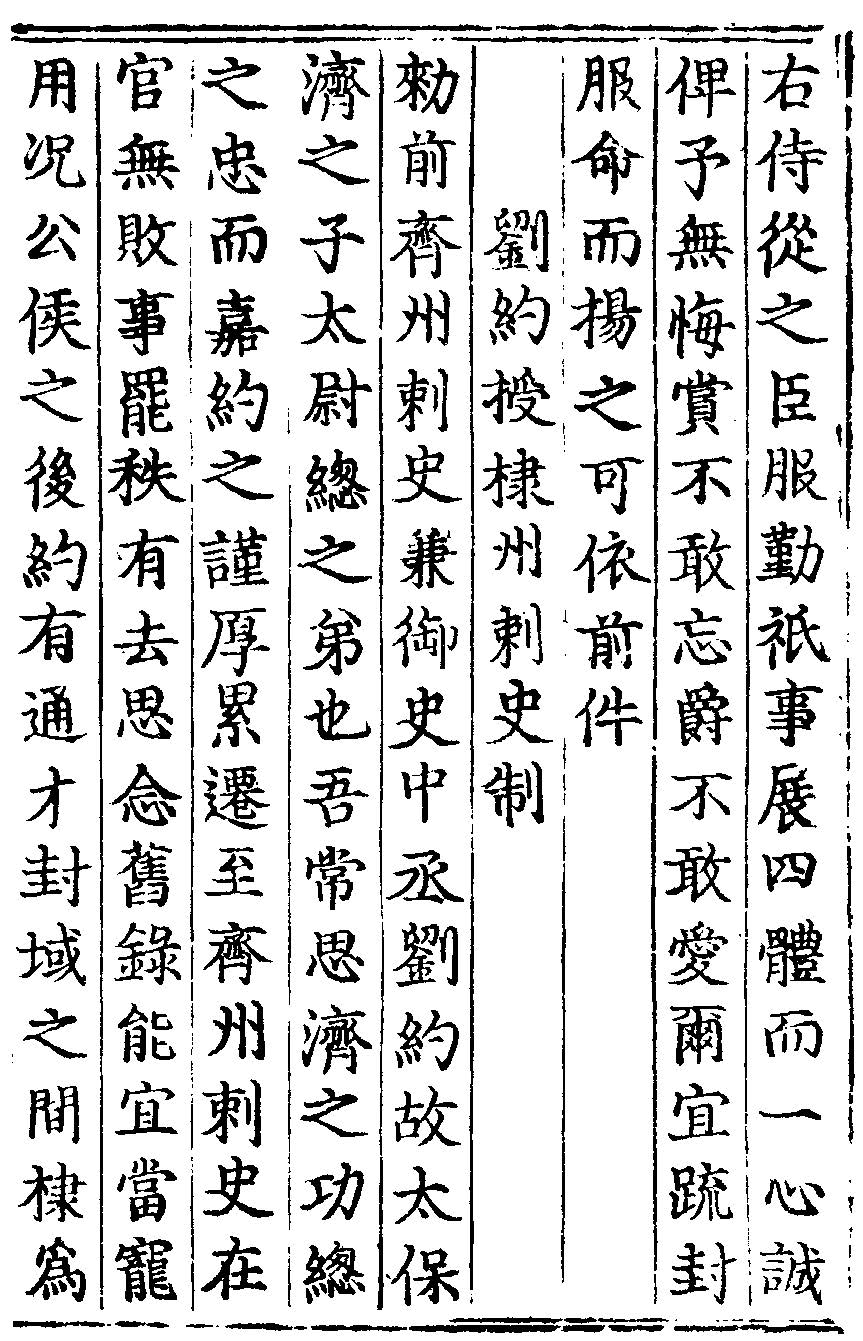 右侍從之臣服勤祇事展四體而一心誠
俾予無悔賞不敢忘爵不敢愛爾宜䟽封
服命而揚之可依前件
劉約授棣州刺史制
勑前齊州刺史兼御史中丞劉約故太保
濟之子太尉緫之弟也吾常思濟之功緫
之忠而嘉約之謹厚累遷至齊州刺史在
官無敗事罷秩有去思念舊錄能宜當寵
用况公侯之後約有通才封域之間棣爲